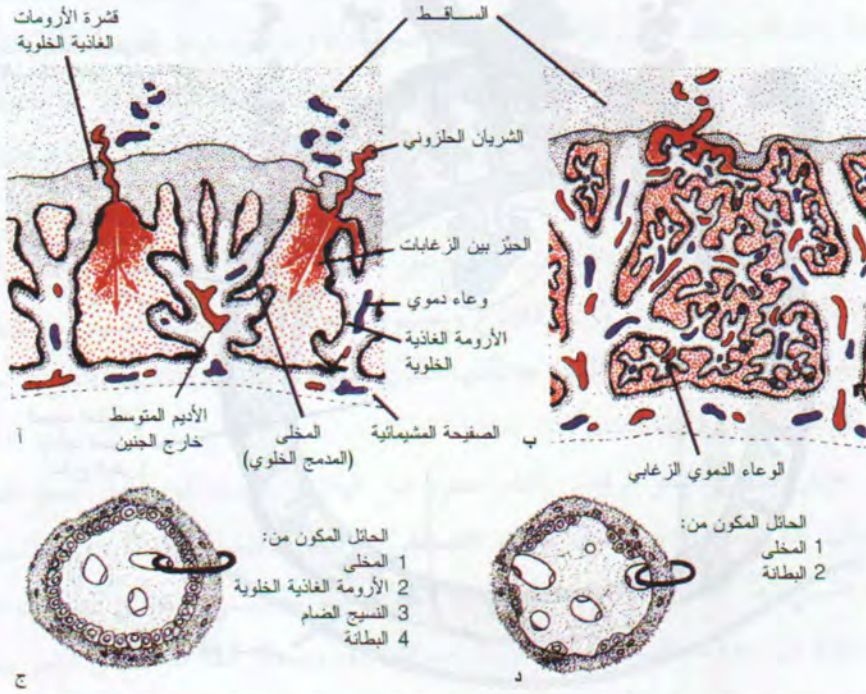 قشرة الأرومات
الغاذية الخلوية
الساقط
الشريان الحلزوني
الحيّز بين الزغابات
وعاء دموي
الأرومة الغاذية
الخلوية
الأديم المتوسط
خارج الجنين
المخلى
(المدمج الخلوي)
الصفيحة المشيمائية
آ
ب
الوعاء الدموي الزغابي
الحائل المكون من:
1 المخلى
2 الأرومة الغاذية الخلوية
3 النسيج الضام
4 البطانة
ج
الحائل المكون من:
1 المخلى
2 البطانة
د